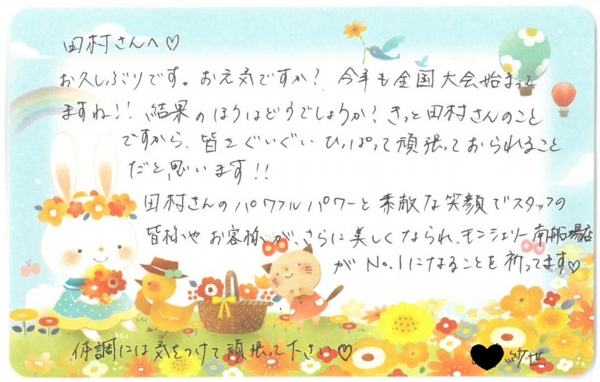 田村さんへ♡
お久しぶりです。お元気ですか？今年も全国大会始まって
ますね!!結果のほうはどうでしょうか？きっと田村さんのこと
ですから、皆をぐいぐいひっぱって頑張っておられること
だと思います!!
田村さんのパワフルパワーと素敵な笑顔でスタッフの
皆様やお客様が、さらに美しくなられ、モンシェリー南船場店
がNo.1になることを祈ってます♡
体調には気をつけて頑張って下さい♡
紗世